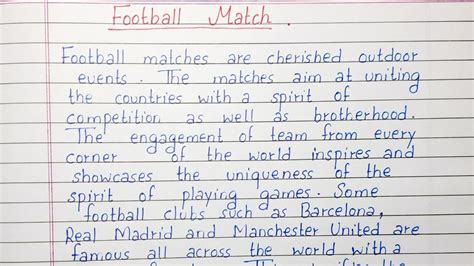 Football Match.
Football matches are cherished outdoor
events. The matches aim at uniting
the countries with a spirit of
competition as well as brotherhood.
The engagement of team from every
corner of the world inspires and
showcases the uniqueness of the
spirit of playing games. Some
football clubs such as Barcelona,
Real Madrid and Manchester United are
famous all across the world with a